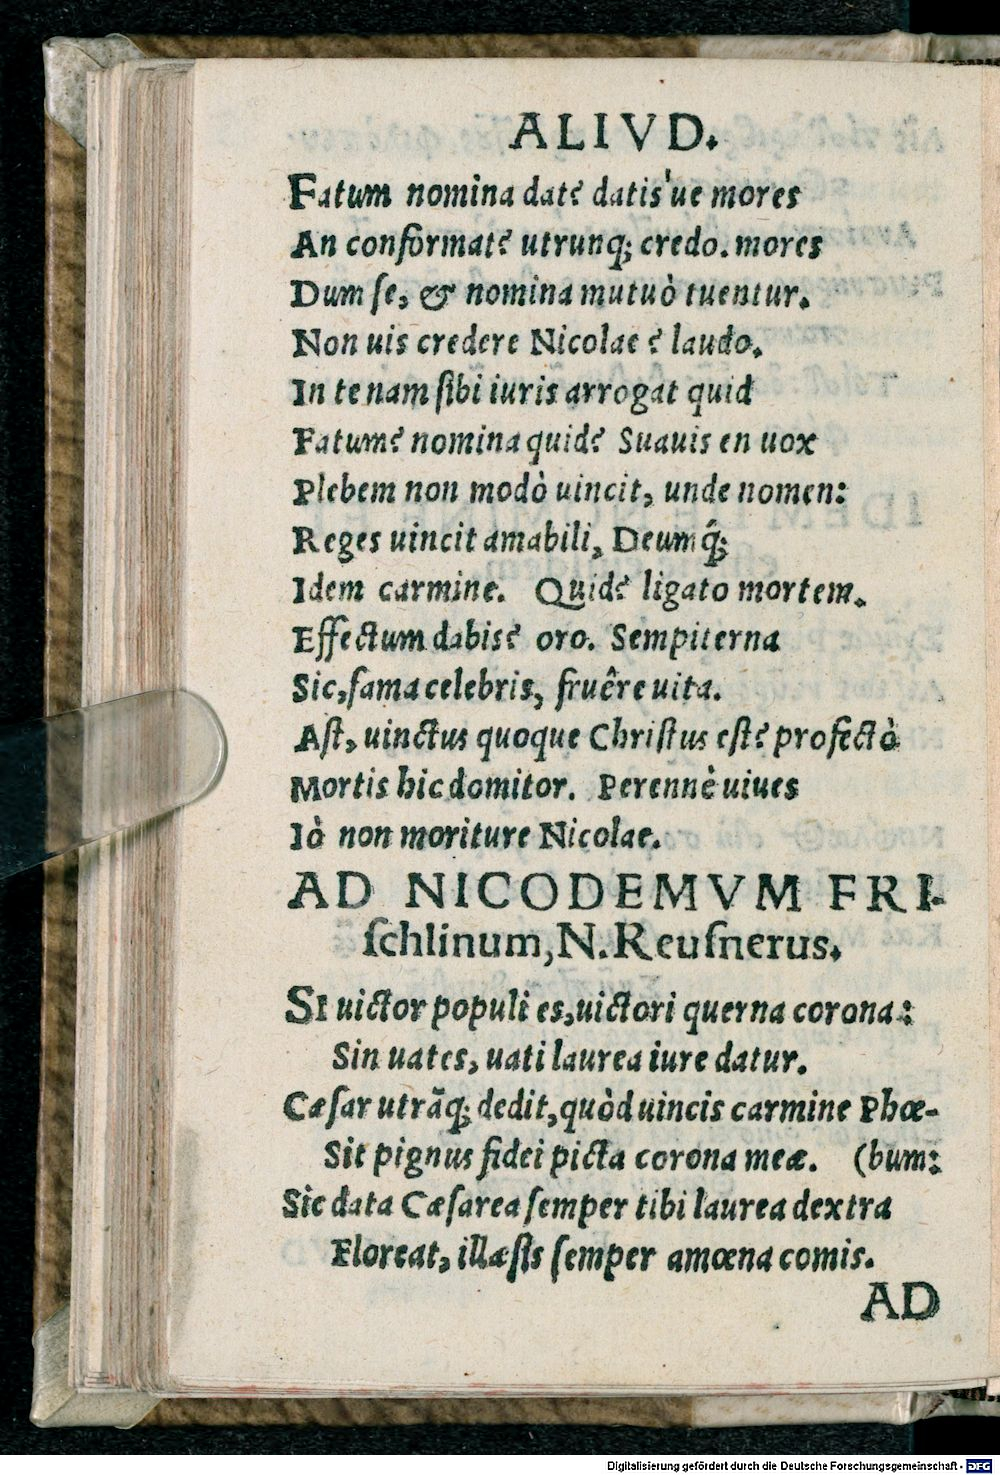 ALIVD.
Fatum nomina dat? datis'ue mores
An conformat? utrunq; credo. mores
Dum se, & nomina mutuò tuentur.
Non uis credere Nicolae? laudo.
In te nam sibi iuris arrogat quid
Fatum? nomina quid? Suauis en uox
Plebem non modò uincit, unde nomen:
Reges uincit amabili, Deumq́;
Idem carmine. Quid? ligato mortem.
Effectum dabis? oro. Sempiterna
Sic, fama celebris, fruêre uita.
Ast, uinctus quoque Christus est? profectò
Mortis hic domitor. Perennè uiues
Iò non moriture Nicolae.
AD NICODEMVM FRI-
schlinum, N. Reusnerus.
SI uictor populi es, uictori querna corona:
Sin uates, uati laurea iure datur.
Cæsar utrāq; dedit, quòd uincis carmine Phœ-
Sit pignus fidei picta corona meæ. (bum:
Sic data Cæsarea semper tibi laurea dextra
Floreat, illæsis semper amœna comis.
AD
Digitalisierung gefördert durch die Deutsche Forschungsgemeinschaft - DFG